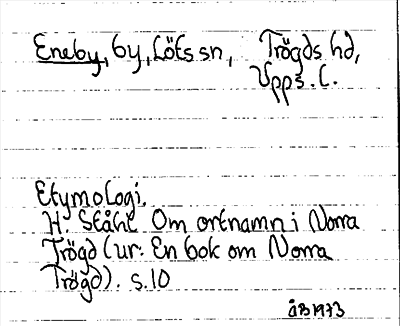 Eneby, by, Löts sn, Trögds hd,
Upps. l.
Etymologi.
H. Ståhl Om ortnamn i Norra
Trögd (ur: En bok om Norra
Trögd). s. 10
ÅB 1973